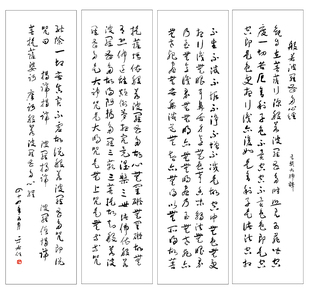 般若波羅蜜多心經
觀自在菩薩行深般若波羅蜜多時照見五蘊皆空
度一切苦厄舍利子色不異空空不異色色即是空空
即是色受想行識亦復如是舍利子是諸法空相
不生不滅不垢不淨不增不減是故空中無色無受
想行識無眼耳鼻舌身意無色聲香味觸法無眼界
乃至無意識界無無明亦無無明盡乃至無老死亦
無老死盡無苦集滅道無智亦無得以無所得故菩
提薩埵依般若波羅蜜多故心無罣礙無罣礙故無
有恐怖遠離顛倒夢想究竟涅槃三世諸佛依般若
波羅蜜多故得阿耨多羅三藐三菩提故知般若波
羅蜜多是大神咒是大明咒是無上咒是無等等咒
能除一切苦真實不虛故說般若波羅蜜多咒即說
咒曰 揭諦揭諦 波羅揭諦 波羅僧揭諦
菩提薩婆訶 摩訶般若波羅蜜多心經